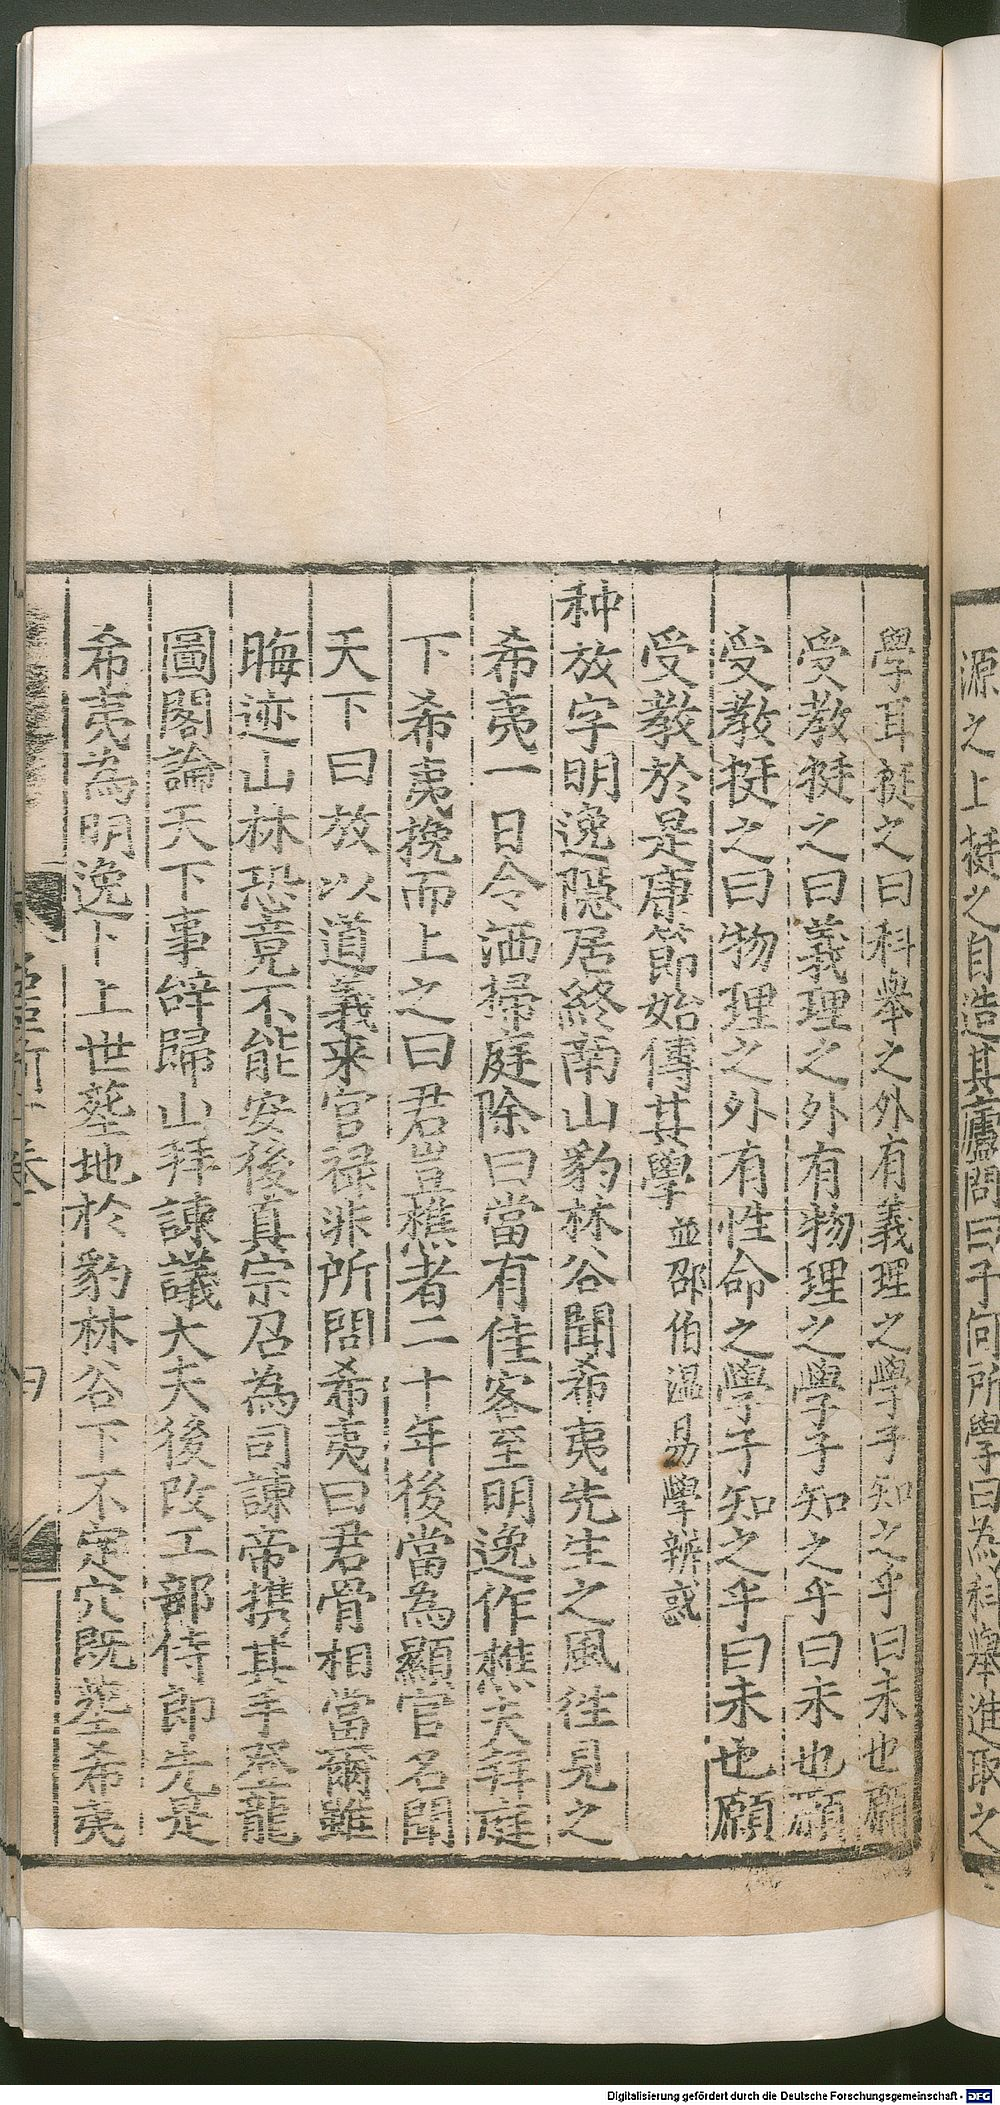 源之上挺之自造其廬問曰子何所學曰為科舉進取之
學耳挺之曰科舉之外有義理之學子知之乎曰未也願
受教挺之曰義理之外有物理之學子知之乎曰未也願
受教挺之曰物理之外有性命之學子知之乎曰未也願
受教於是康節始傳其學並邵伯溫易學辨惑
种放字明逸隱居終南山豹林谷聞希夷先生之風徃見之
希夷一日令洒掃庭除曰當有佳客至明逸作樵夫拜庭
下希夷挽而上之曰君豈樵者二十年後當為顯官名聞
天下曰放以道義来官禄非所問希夷曰君骨相當爾雖
晦迹山林恐竟不能安後真宗召為司諫帝携其手登龍
圖閣論天下事辝歸山拜諫議大夫後改工部侍郎先是
希夷為明逸卜上世塟地於豹林谷下不定穴既塟希夷
Digitalisierung gefördert durch die Deutsche Forschungsgemeinschaft - DFG